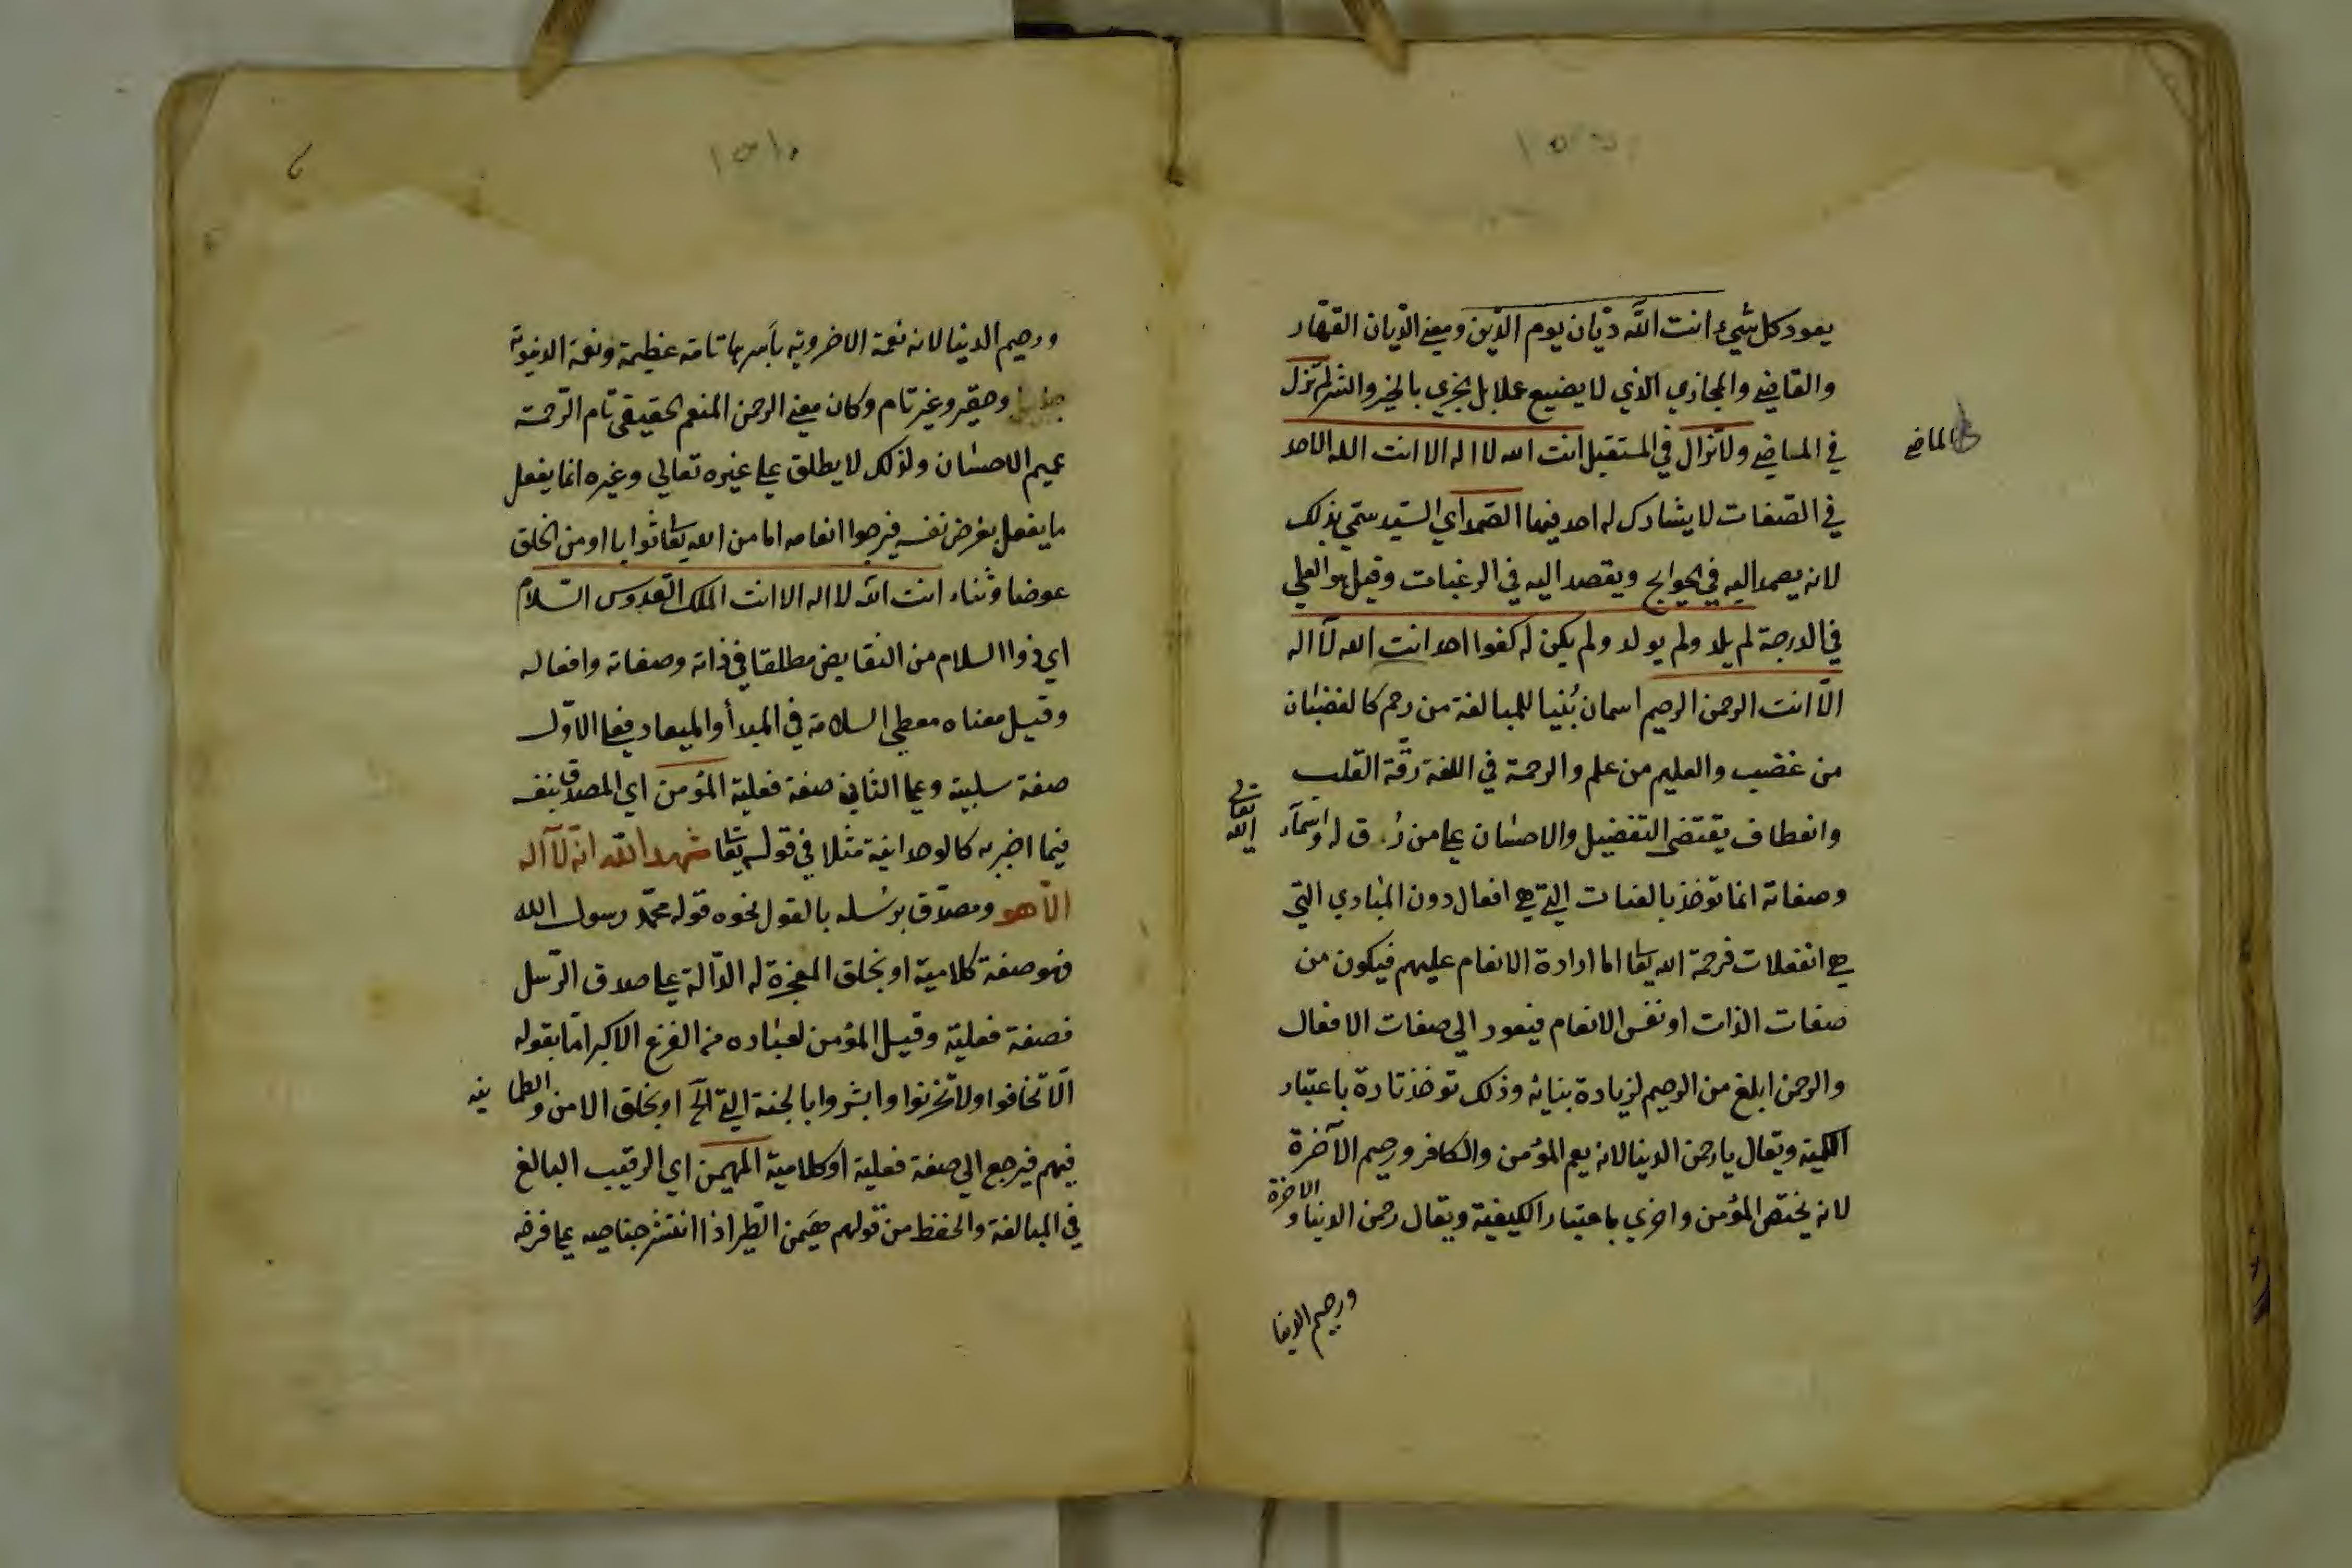 يعود كل شيء انت الله ديّان يوم الدّين ومعنى الدّيان القهّار
والقاضي والمجازي الذي لا يضيع عملا بل يجزي بالخير والشر لم تزل
في الماضي ولا تزال في المستقبل انت الله لا اله الا انت الله الاحد
الماضي
في الصّفات لا يشارك له احد فيها الصّمد اي السّيد سمّي بذلك
لانه يصمد اليه في الحوايج ويقصد اليه في الرغبات وقيل هو العلي
في الدرجة لم يلد ولم يولد ولم يكن له كفوا احد انت الله لآ اله
الّا انت الرحمن الرحيم اسمان بُنيا للمبالغة من رحم كالغضبان
من غضب والعليم من علم والرحمة في اللغة رقّة القلب
وانعطاف يقتضي التفضيل والاحسان على من رق له واسمآء
الله تعالى
وصفاته انما توخذ بالغايات التي هي افعال دون المبادي التي
هي انفعلات فرحمة الله تعا اما ارادة الانعام عليهم فيكون من
صفات الذات او نفس الانعام فيعود الي صفات الافعال
والرحمن ابلغ من الرحيم لزيادة بنائه وذلك توخذ تارة باعتبار
الكمية ويقال يا رحمن الدنيا لانه يعم المؤمن والكافر ورحيم الآخرة
لانه يختص المؤمن واخري باعتبار الكيفية ويقال رحمن الدنيا والاخرة
ورحيم الدنيا
ورحيم الدنيا لانه نعمة الاخروية بأسرها تامة عظيمة ونعمة الدنيوية
وحقير وغير تام وكان معنى الرحمن المنعم الحقيقي تام الرّحمة
عميم الاحسان ولذلك لا يطلق على غيره تعالي وغيره انما يفعل
ما يفعل بغرض نفسه فيرجوا انعامه اما من الله تعا ثوابا او من الخلق
عوضا وثناء انت الله لا اله الا انت الملك القدوس السّلام
اي ذوا السلام من النقايص مطلقا في ذاته وصفاته وافعاله
وقيل معناه معطي السلامة في المبدأ والميعاد فعلى الاوّل
صفة سلبية وعلى الثاني صفة فعلية المؤمن اي المصدق بنفسه
فيما اخبر به كالوحدانية مثلا في قوله تعا شهد الله انه لآ اله
الّا هو ومصدّق برسله بالقول نحوه قوله محمّد رسول الله
فهو صفة كلامية او بخلق المعجزة له الدّالة على صدق الرّسل
فصفة فعليّة وقيل المؤمن لعباده من الفزع الاكبر امّا بقوله
الّا تخافوا ولا تحزنوا وابشروا بالجنة التي الخ او بخلق الامن والطمانينه
فيهم فيرجع الي صفة فعلية او كلامية المهيمن اي الرقيب البالغ
في المبالغة والحفظ من قولهم هيمن الطّير اذا انتشر جناحيه على فرخه